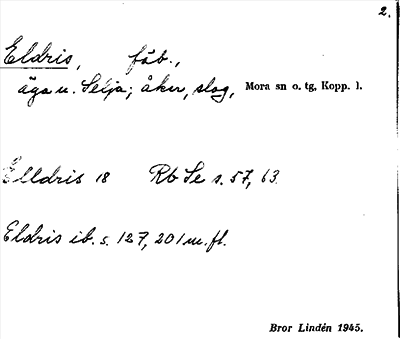 2.
Eldris, fäb.,
äga u. Selja; åker, slog, Mora sn o. tg, Kopp. l.
Elldris 18 Rb Se s. 57, 63.
Eldris ib. s. 127, 201 m. fl.
Bror Lindén 1945.